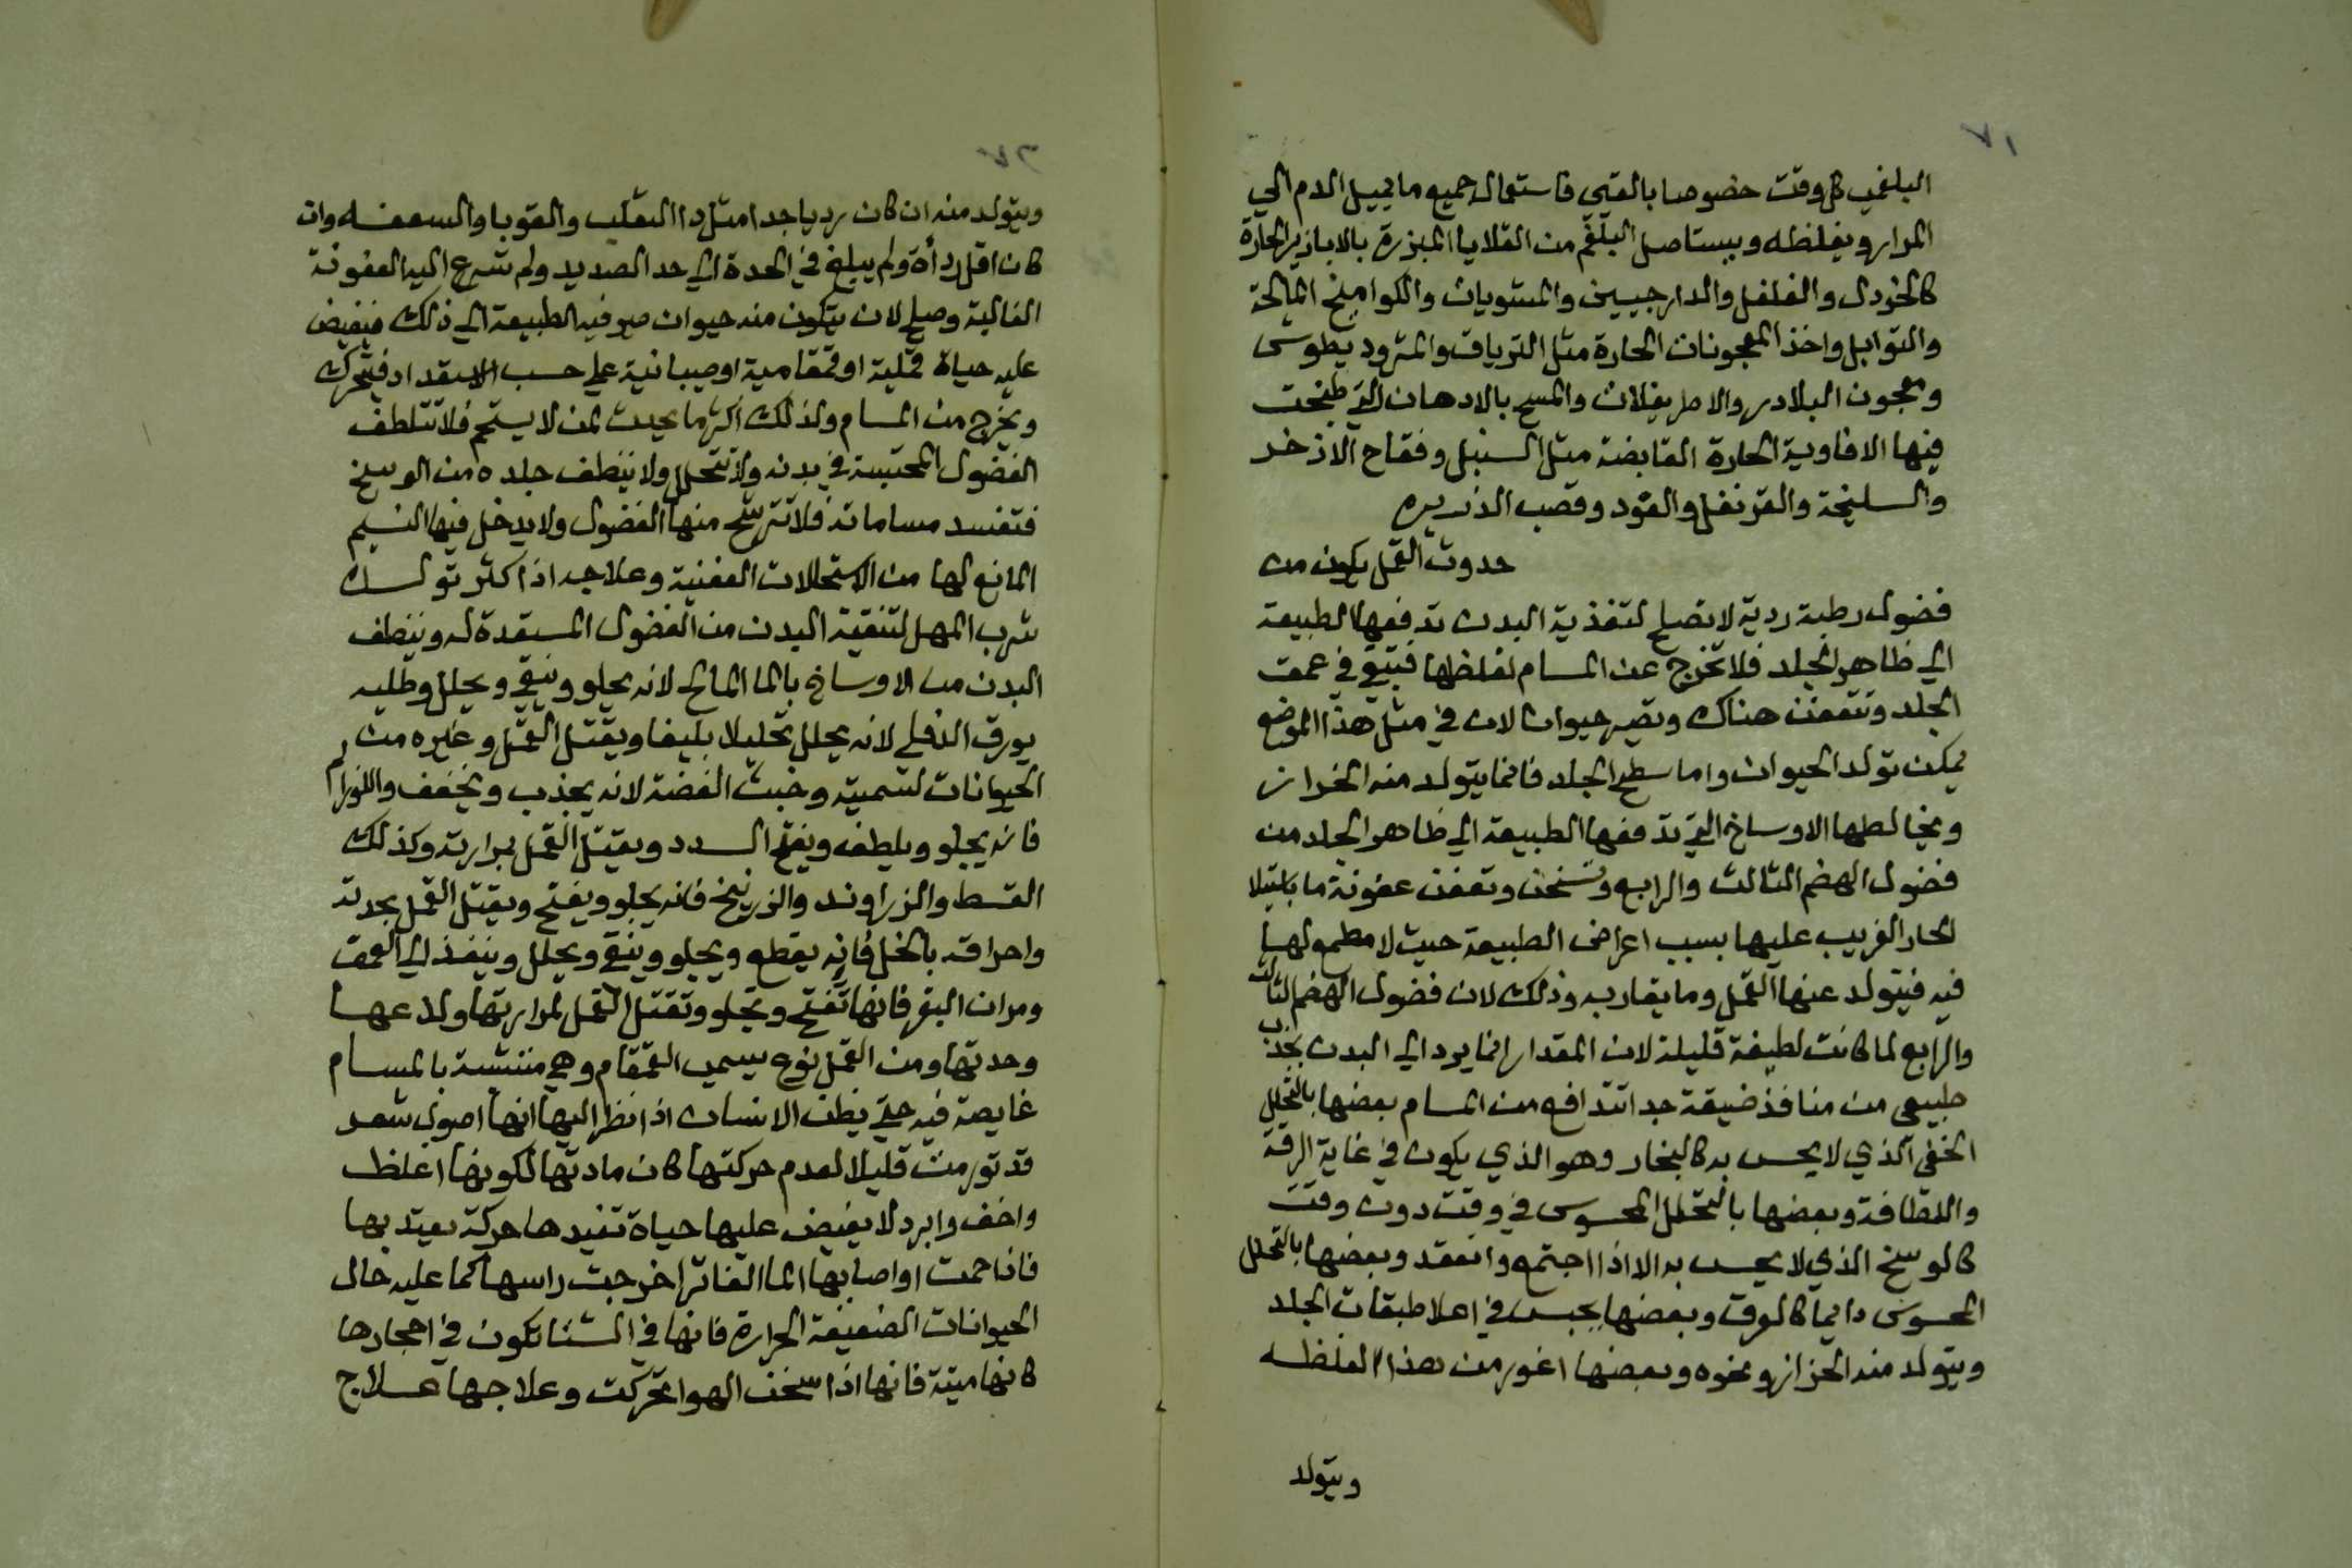 البلغمي كل وقت خصوصا بالقي فاستعمال جميع ما يميل الدم الي
المرار ويغلظه ويستاصل البلغم من القلايا المبزرة بالابازير الحارة
كالخردل والفلفل والدارجيين والمشويات والكواميخ المالحة
والتوابل واخذ المعجونات الحارة مثل الترياق والمثروديطوس
ومعجون البلادر والاطريفلات والمسح بالادهان التي طبخت
فيها الافاوية الحارة القابضة مثل السنبل وفقاح الاذخر
والسليخة والقرنفل والعود وقصب الذريره
حدوث القمل يكون من
فضول رطبة ردية لا تصلح لتغذية البدن تدفعها الطبيعة
الي ظاهر الجلد فلا تخرج عن المسام لغلظها فتبقي في عمق
الجلد وتتعفن هناك وتصير حيوانا لان في مثل هذا الموضع
يمكن تولد الحيوان واما سطح الجلد فانما يتولد منه الخراز
ويخالطها الاوساخ التي تدفعها الطبيعة الي ظاهر الجلد من
فضول الهضم الثالث والرابع وتسخن وتعفن عفونة ما باستيلا
الحار الغريب عليها بسبب اعراض الطبيعة حيث لا مطمع لها
فيه فيتولد عنها القمل وما يقاربه وذلك لان فضول الهضم الثالث
والرابع لما كانت لطيفة قليلة لان المقدار انما يرد الي البدن بجذب
طبيعي من منافذ ضيقة جدا تندافع من المسام بعضها بالتحلل
الخفي الذي لا يحس به كالبخار وهو الذي يكون في غاية الرقة
واللطافة وبعضها بالتحلل المحسوس في وقت دون وقت
كالوسخ الذي لا يحس به الا اذا اجتمع وانعقد وبعضها بالتحلل
المحسوس دايما كالعرق وبعضها يحبس في اعلا طبقات الجلد
ويتولد منه الحزاز ونحوه وبعضها اغور من هذا الغلظه
ويتولد
ويتولد منه ان كان رديا جدا مثل دا الثعلب والقوبا والسعفه وان
كان اقل ردأة ولم يبلغ في الحدة الي حد الصديد ولم تسرع اليه العفونة
الغالبة وصلح لان يتكون منه حيوان صرفه الطبيعة الي ذلك فيفيض
عليه حياة قملية او قمقامية او صيبانية علي حسب الاستعداد فيتحرك
ويخرج من المسام ولذلك اكثر ما يحدث لمن لا يستحم فلا تتلطف
الفضول المحتبسة في بدنه ولا تتحلل ولا يتنظف جلده من الوسخ
فتفسد مساماته فلا تترشح منها الفضول ولا يدخل فيها النسيم
المانع لها من الاستحالات العفنية وعلاجه اذا كثر تولده
شرب المسهل لتنقية البدن من الفضول المستعدة له وتنظف
البدن من الاوساخ بالما المالح لانه يجلو وينقي ويحلل وطليه
بورق الدفلي لانه يحلل تحليلا بليغا ويقتل القمل وغيره من
الحيوانات لسميته وخبث الفضة لانه يجذب ويخفف
فانه يجلو ويلطف ويفتح السدد ويقتل القمل بمرارته وكذلك
القسط والزراوند والزرنيخ فانه يجلو ويفتح ويقتل القمل بحدته
واحراقه بالخل فانه يقطع ويجلو وينقي ويحلل وينفذ الي العمق
ومرات البقر فانها تفتح وتجلو وتقتل القمل لمرارتها ولذعها
وحدتها ومن القمل نوع يسمي القمقام وهي منتشبة بالمسام
غايصة فيه حتي يظن الانسان اذا نظر اليها انها اصول شعر
قد تورمت قليلا لعدم حركتها كان مادتها لكونها اغلظ
واخف وابرد لا يفيض عليها حياة تفيدها حركة يعتد بها
فاذا حمت او اصابها الما الفاتر اخرجت راسها كما عليه حال
الحيوانات الضعيفة الحرارة فانها في الشتا تكون في احجارها
كانها ميتة فانها اذا سخن الهوا تحركت وعلاجها علاج